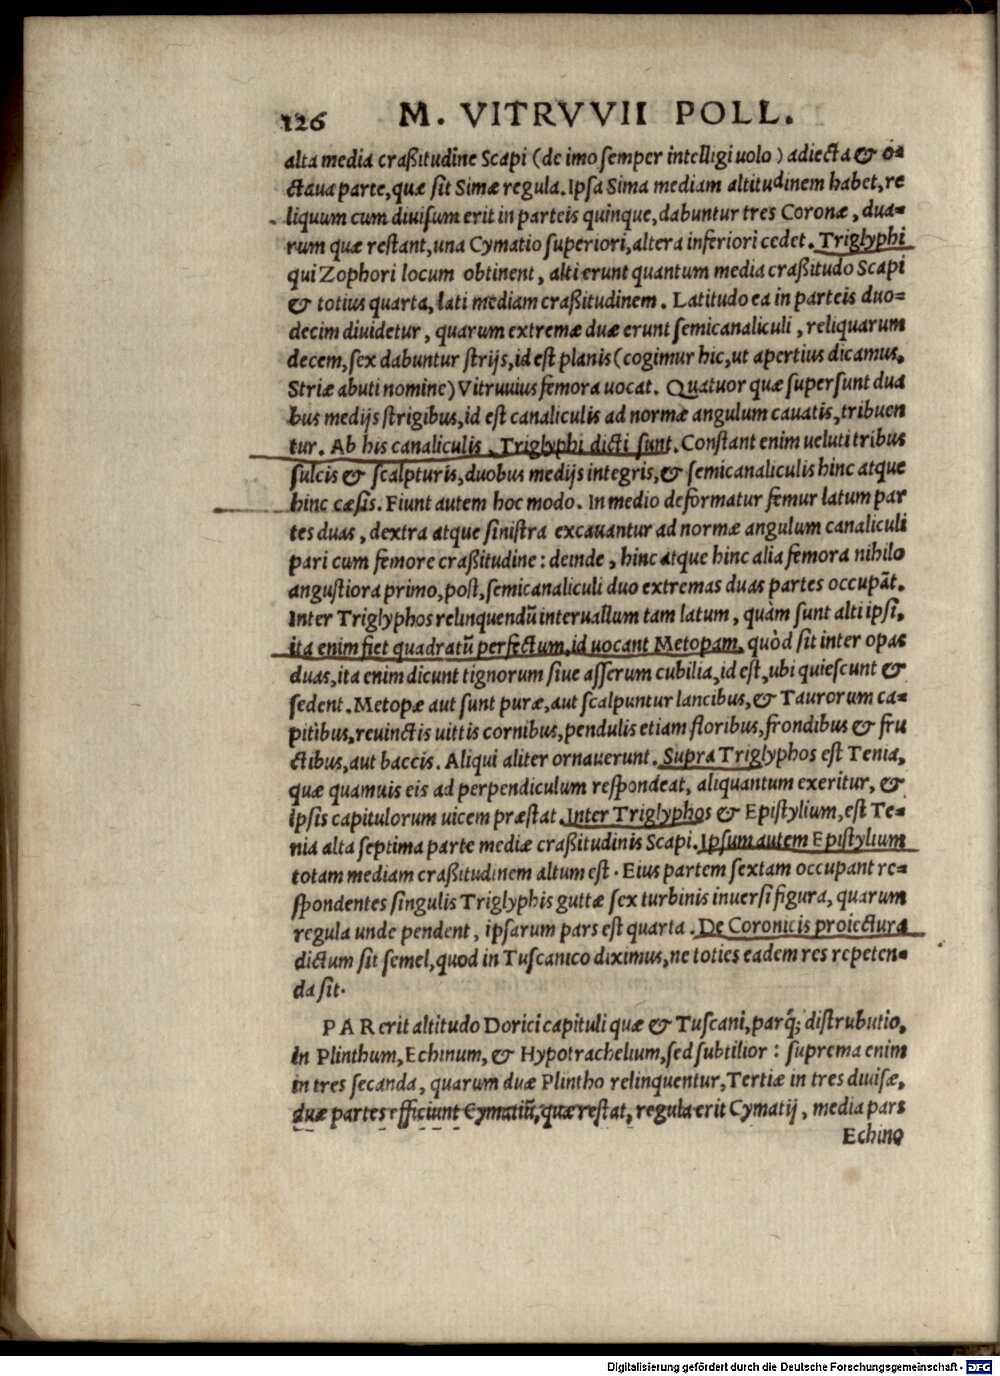 126 M. VITRVVII POLL.
alta media craßitudine Scapi (de imo semper intelligi uolo) adiecta & o=
ctaua parte, quæ sit Simæ regula. Ipsa Sima mediam altitudinem habet, re
liquum cum diuisum erit in parteis quinque, dabuntur tres Coronæ, dua=
rum quæ restant, una Cymatio superiori, altera inferiori cedet. Triglyphi
qui Zophori locum obtinent, alti erunt quantum media craßitudo Scapi
& totius quarta, lati mediam craßitudinem. Latitudo ea in parteis duo=
decim diuidetur, quarum extremæ duæ erunt semicanaliculi, reliquarum
decem, sex dabuntur strijs, id est planis (cogimur hic, ut apertius dicamus,
Striæ abuti nomine) Vitruuius femora uocat. Quatuor quæ supersunt dua
bus medijs strigibus, id est canaliculis ad normæ angulum cauatis, tribuen
tur. Ab his canaliculis, Triglyphi dicti sunt. Constant enim ueluti tribus
sulcis & scalpturis, duobus medijs integris, & semicanaliculis hinc atque
hinc cæsis. Fiunt autem hoc modo. In medio deformatur femur latum par
tes duas, dextra atque sinistra excauantur ad normæ angulum canaliculi
pari cum femore craßitudine: deinde, hinc atque hinc alia femora nihilo
angustiora primo, post, semicanaliculi duo extremas duas partes occupāt.
Inter Triglyphos relinquendū interuallum tam latum, quàm sunt alti ipsi,
ita enim fiet quadratū perfectum, id uocant Metopam, quòd sit inter opas
duas, ita enim dicunt tignorum siue asserum cubilia, id est, ubi quiescunt &
sedent. Metopæ aut sunt puræ, aut scalpuntur lancibus, & Taurorum ca=
pitibus, reuinctis uittis cornibus, pendulis etiam floribus, frondibus & fru
ctibus, aut baccis. Aliqui aliter ornauerunt. Supra Triglyphos est Tenia,
quæ quamuis eis ad perpendiculum respondeat, aliquantum exeritur, &
ipsis capitulorum uicem præstat. Inter Triglyphos & Epistylium, est Te=
nia alta septima parte mediæ craßitudinis Scapi. Ipsum autem Epistylium
totam mediam craßitudinem altum est. Eius partem sextam occupant re=
spondentes singulis Triglyphis guttæ sex turbinis inuersi figura, quarum
regula unde pendent, ipsarum pars est quarta. De Coronicis proiectura
dictum sit semel, quod in Tuscanico diximus, ne toties eadem res repeten=
da sit.
PAR erit altitudo Dorici capituli quæ & Tuscani, parq̃; distrubutio,
In Plinthum, Echinum, & Hypotrachelium, sed subtilior: suprema enim
in tres secanda, quarum duæ Plintho relinquentur, Tertiæ in tres diuisæ,
duæ partes efficiunt Cymatiū, quæ restat, regula erit Cymatij, media pars
Echino
Digitalisierung gefördert durch die Deutsche Forschungsgemeinschaft - DFG